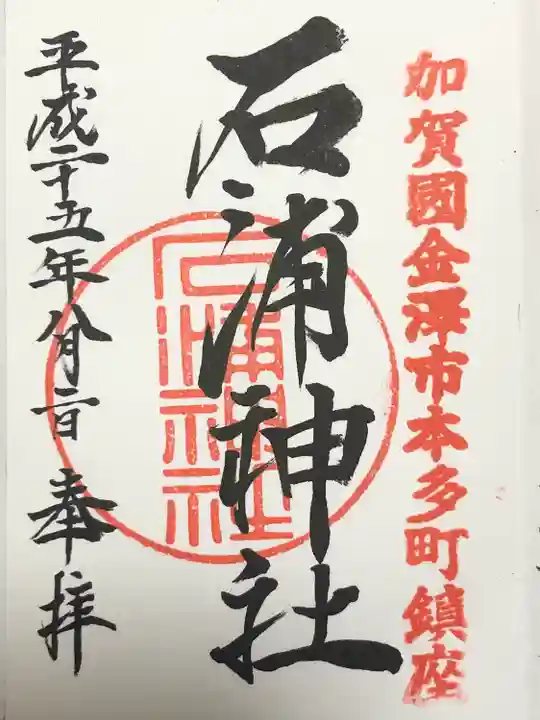 加賀國金澤市本多町鎮座
石浦神社
平成二十五年八月二日 奉拝